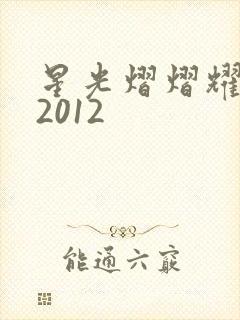 星光熠熠耀
2012
能通六窾